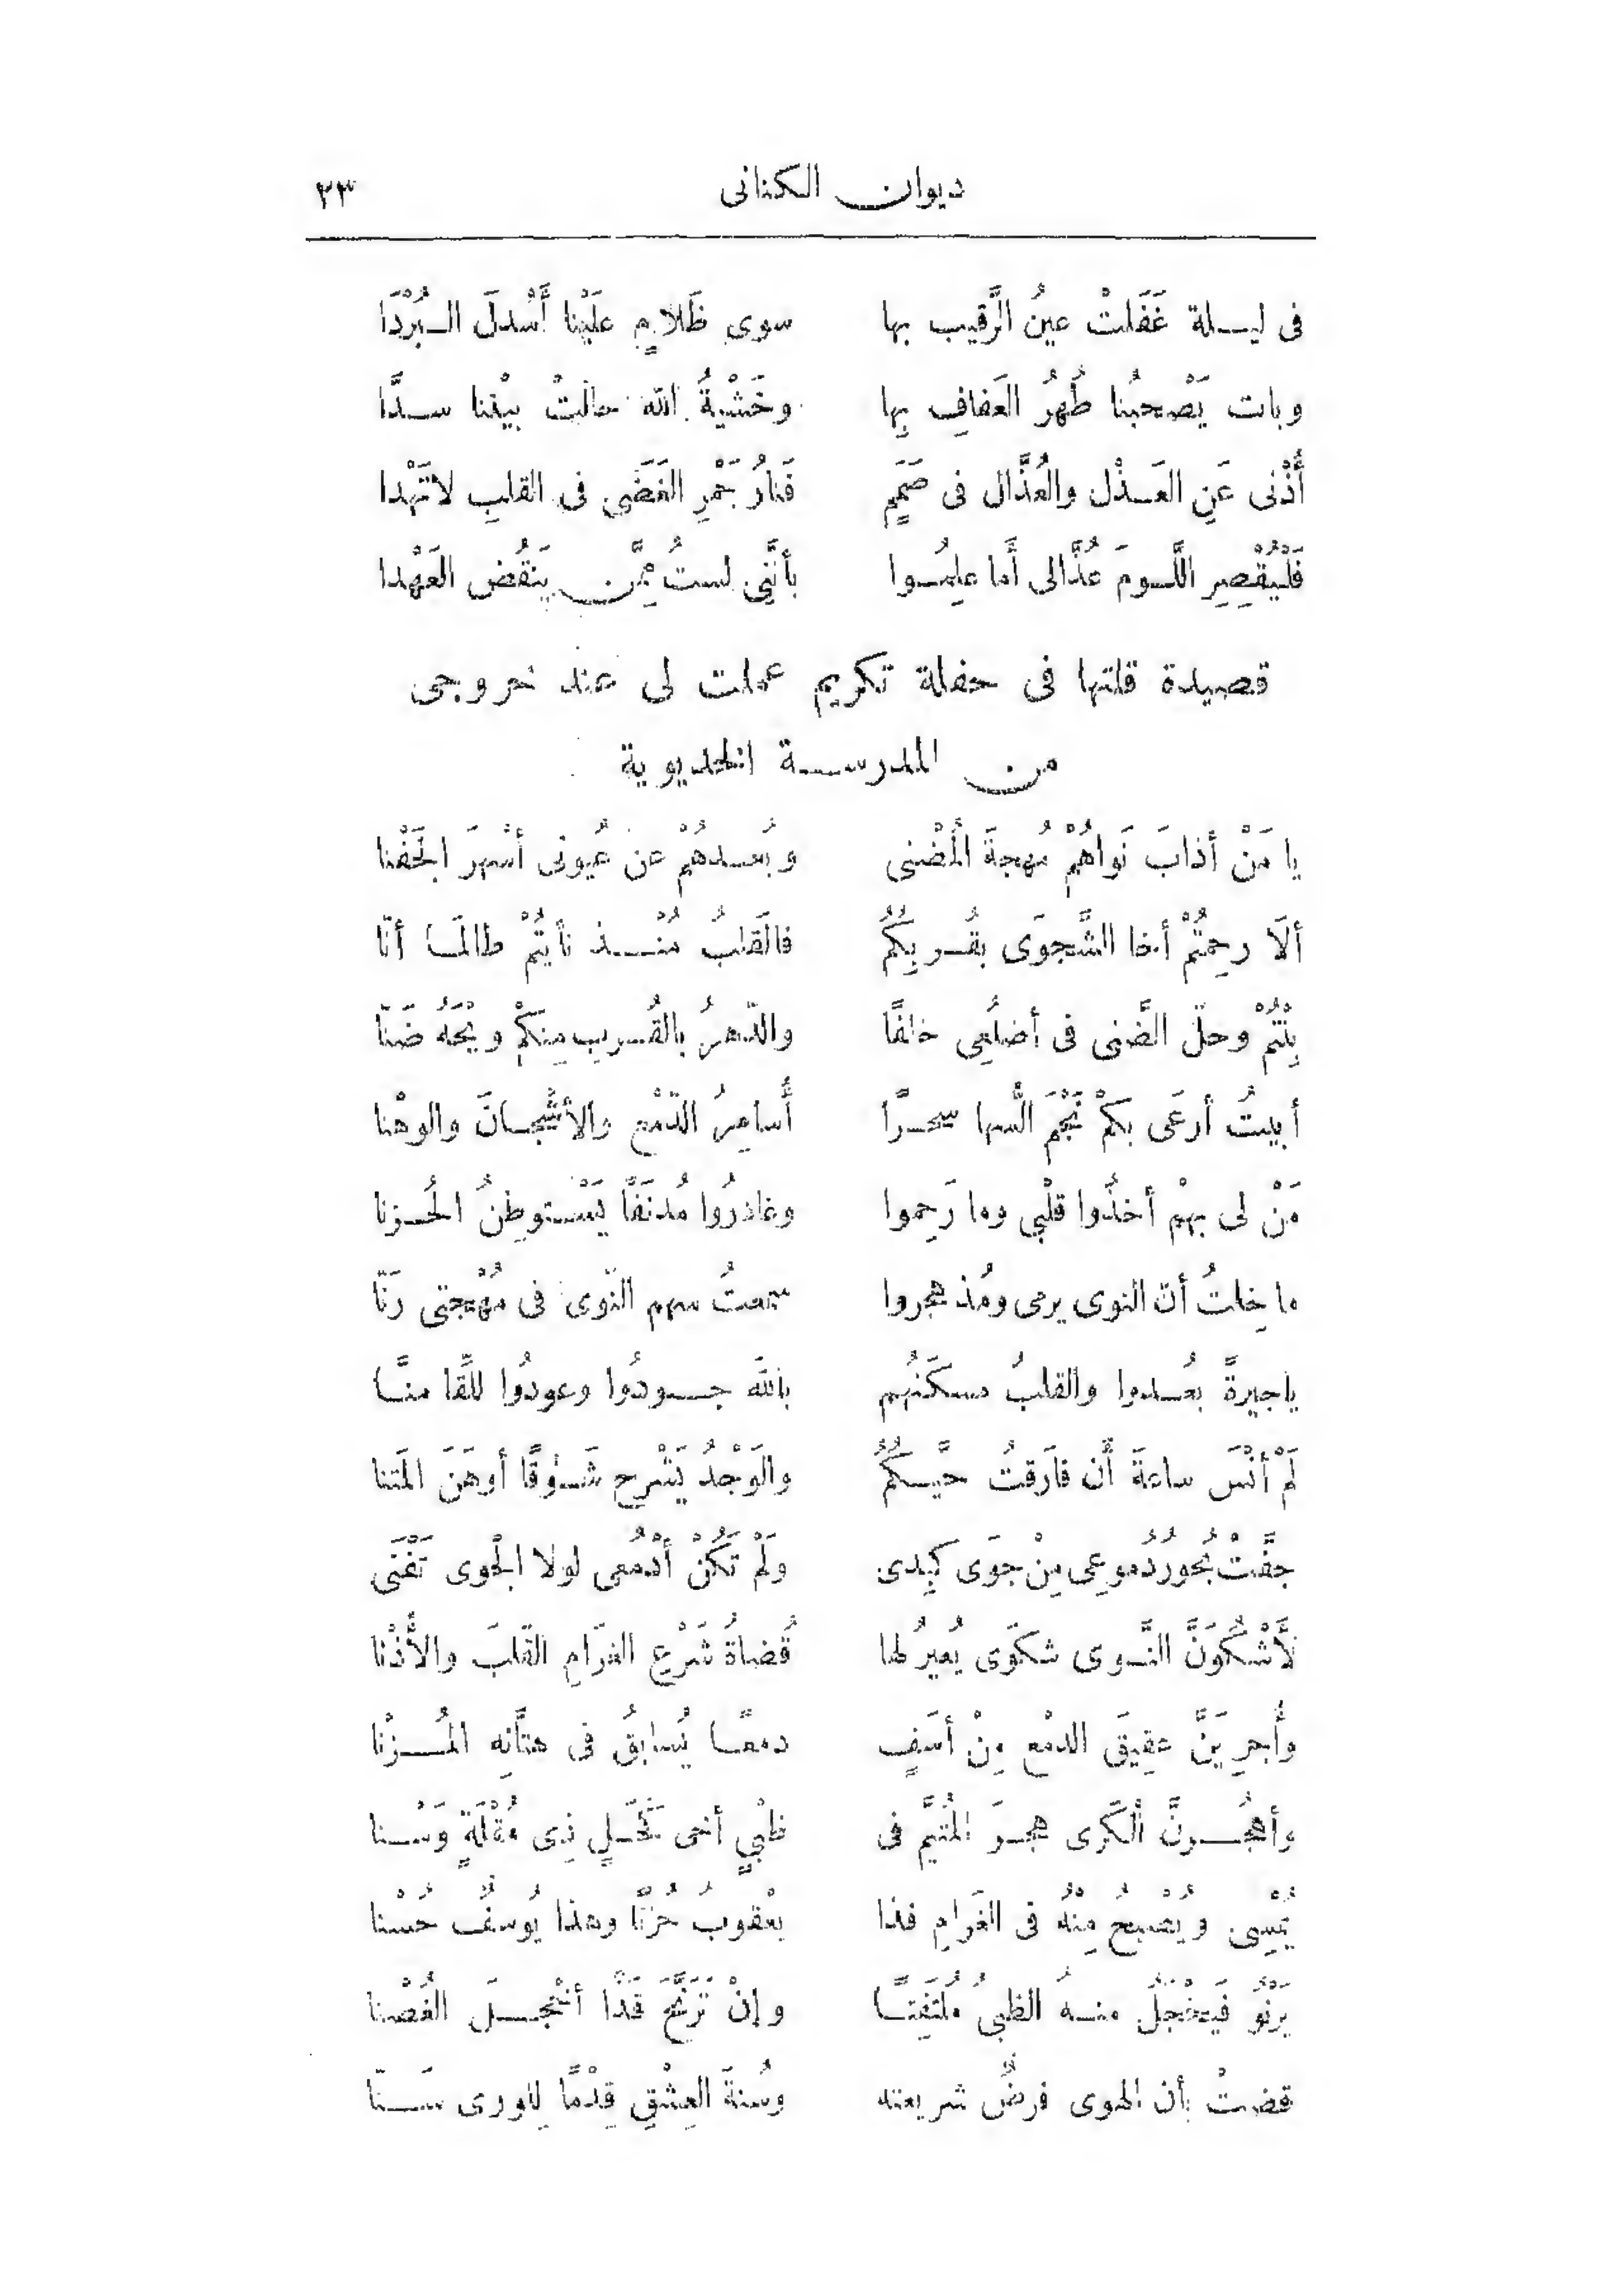 ديوان الكنانى ٣٣
فى ليلة غَفَلتْ عينُ الرَّقيب بها سوى ظَلامٍ علَيْنا أَسْدلَ البُرْدَا
وباتَ يَصْحبُنا طُهرُ العَفافِ بِها وخَشْيةُ الله حالتْ بيْننا سدَّا
أُذْنى عَنِ العَذْل والعُذَّال فى صَمَمٍ فَنارُ جَمْرِ الغَضَى فى القلبِ لا تَهْدا
فَلْيُقْصِرِ اللَّومَ عُذَّالى أَما علِمُوا بأنَّنِى لستُ مِمَّن يَنقُض العَهْدا
قصيدة قلتها فى حفلة تكريم عملت لى عند خروجى
من المدرسة الخديوية
يا مَنْ أذابَ نَواهُمْ مُهجةَ المُضْنى وبُعدهُمْ عن عُيونى أسْهرَ الجَفْنا
ألَا رحِمتُمْ أخا الشَّجوَى بقُربِكُمُ فالقَلبُ مُنْذ نأيتُمْ طالمَا أنّا
بِنْتُمْ وحلّ الضَّنى فى أضلُعِى خلفًا والدّهرُ بالقُربِ مِنكمْ ويْحَهُ ضَنّا
أبيتُ أرعَى بكمْ نَجْمَ السُّها سحرًا أُسامِرُ الدّمْع والأشْجانَ والوهْنا
مَنْ لى بهمْ أخذُوا قلْبي وما رَحِموا وغادرُوا مُدنَفًا يَسْتوطِنُ الحُزنا
ما خِلتُ أنّ النوى يرمى ومُذ هجروا سمعتُ سهم النّوى فى مُهْجتى رَنّا
ياجيرةً بعُدوا والقلبُ مسكَنُهم باللَه جودُوا وعودُوا للِّقَا منَّا
لَمْ أنْسَ ساعةَ أَن فارَقتُ حيَّكُمُ والوَجْدُ يَشْرح شَوْقًا أوهَنَ المَتنا
جفَّتْ بُحورُ دُموعِى مِنْ جوَى كبِدى ولَمْ تَكُنْ أَدْمُعى لولا الجْوى تَفْنَى
لَأَشْكُوَنَّ النَّوى شكوَى يُعيرُ لها قُضاةُ شَرْعِ الغَرَامِ القَلبَ والأُذْنا
وأُجرِيَنَّ عقِيقَ الدمْع مِنْ أسَفٍ دمعًا يُسابقُ فى هتَّانِه المُزْنا
وأهجُرنَّ الْكَرى هجرَ المُتيَّم فى ظبْيٍ أخى كَحَلٍ ذِى مُقْلَةٍ وَسْنا
يُمْسِى ويُصْبح مِنْهُ فى الغَرامِ فذا يعْقوبُ حُزنًا وهذا يُوسفٌ حُسْنا
يَرْنُو فَيَخْجَلُ منهُ الظبىُ مُلتَفِتًا وإنْ تَرَنَّحَ قَدًّا أخْجلَ الغُصْنا
قضتْ بأن الهوى فرضٌ شريعته وسُنةَ العِشْقِ قِدْمًا لِلورى سَنّا